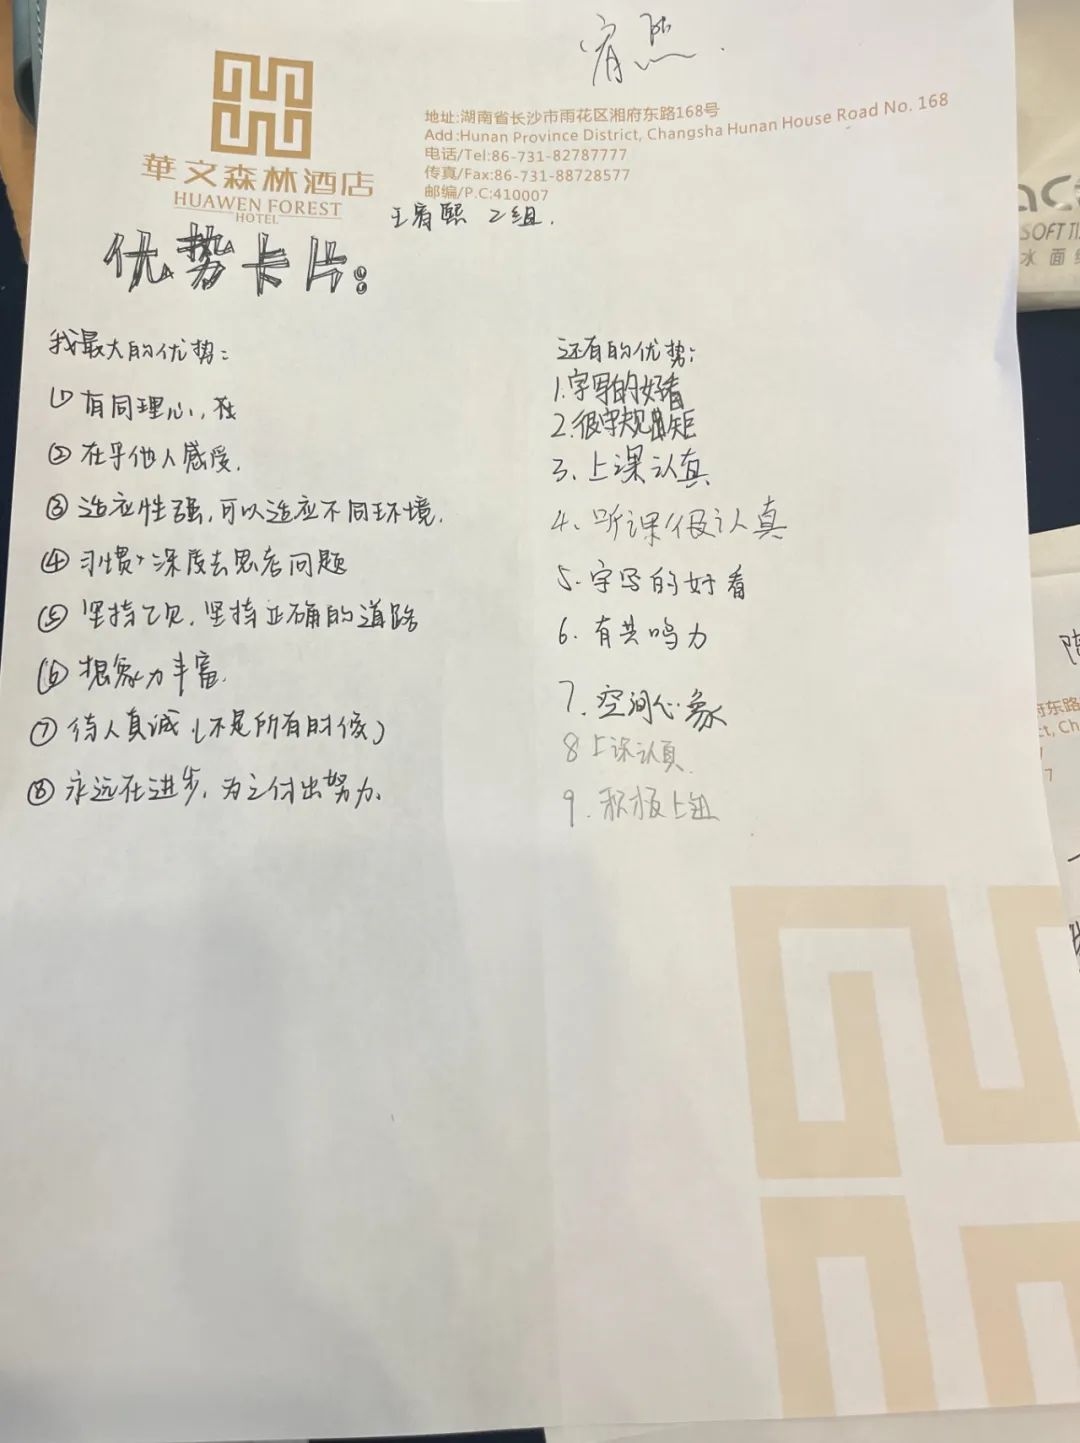 宥熙.
華文森林酒店
HUAWEN FOREST
HOTEL
地址:湖南省长沙市雨花区湘府东路168号
Add:Hunan Province District, Changsha Hunan House Road No. 168
电话/Tel:86-731-82787777
传真/Fax:86-731-88728577
邮编/P.C:410007
王宥熙 2组.
优势卡片:
我最大的优势:
① 有同理心, 在
② 在乎他人感受.
③ 适应性强,可以适应不同环境.
④ 习惯深度去思考问题
⑤ 坚持己见, 坚持正确的道路
⑥ 想象力丰富.
⑦ 待人真诚 (不是所有时候)
⑧ 永远在进步, 为之付出努力.
还有的优势:
1.字写的好看
2.很守规矩
3、上课认真
4、听课很认真
5. 字写的好看
6. 有共鸣力
7. 空间心象
8 上课认真
9. 积极上
SOFT
水 面
府东路
ct, Ch
7